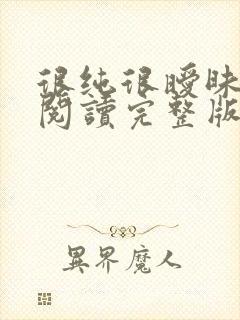 很纯很曖昧
閱讀完整版
異界魔人